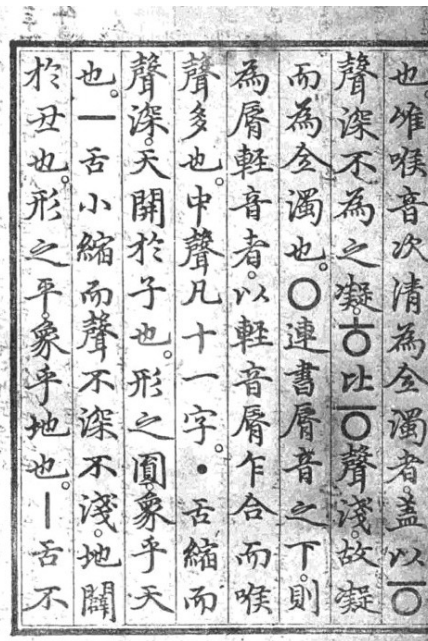 也。唯喉音次清為全濁者。盖以ㆆ
聲深不為之凝。ㅎ比ㆆ聲淺。故凝
而為全濁也。ㅇ連書脣音之下。則
為脣軽音者。以軽音脣乍合而喉
聲多也。中聲凡十一字。ㆍ舌縮而
聲深。天開於子也。形之圓。象乎天
也。ㅡ舌小縮而聲不深不淺。地闢
於丑也。形之平。象乎地也。ㅣ舌不